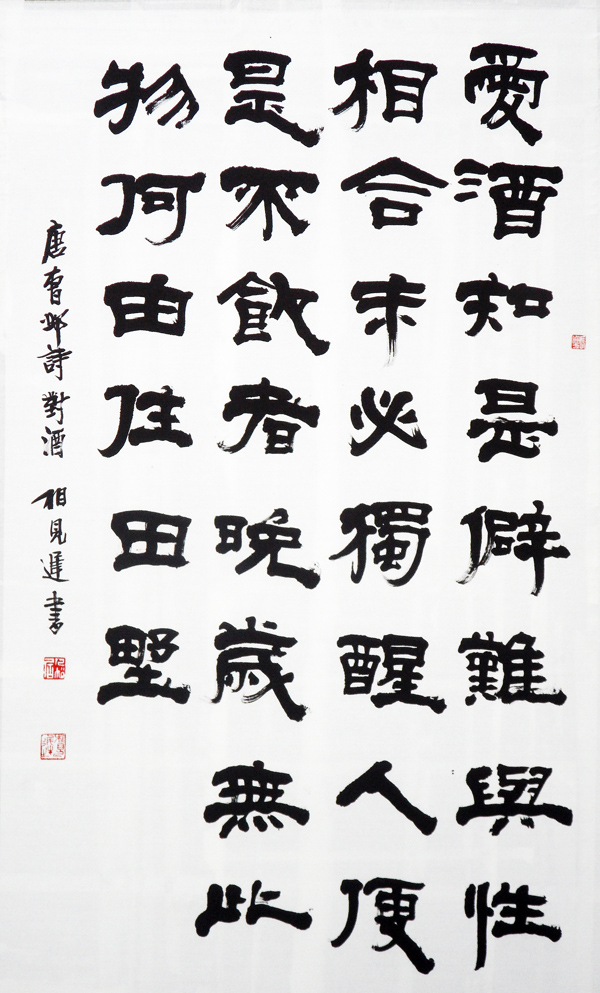 愛酒知是僻難與性
相合未必獨醒人便
是不飲者晚歲無此
物何由住田墅
唐曹邺詩對酒 相見遲書